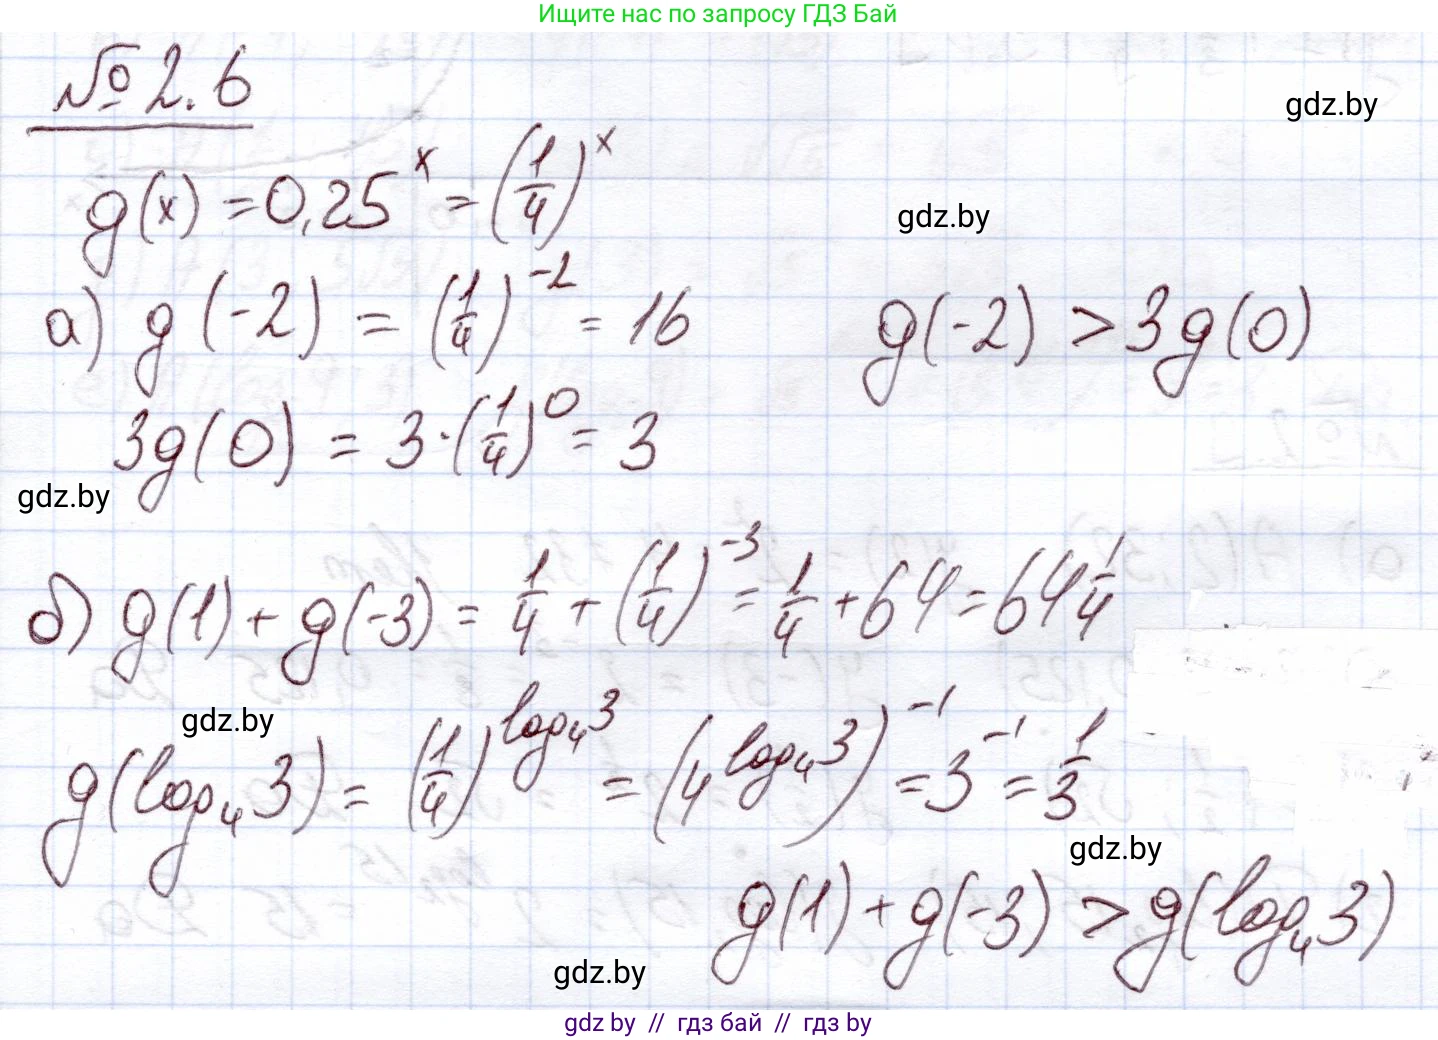 Ищите нас по запросу ГДЗ Бай
№ 2.6
gdz.by
g(x) = 0,25^x = (1/4)^x
gdz.by
а) g(-2) = (1/4)^-2 = 16    g(-2) > 3g(0)
3g(0) = 3·(1/4)^0 = 3
gdz.by
б) g(1) + g(-3) = 1/4 + (1/4)^-3 = 1/4 + 64 = 64 1/4
gdz.by
g(log₄3) = (1/4)^log₄3 = (4^log₄3)^-1 = 3^-1 = 1/3
gdz.by
g(1) + g(-3) > g(log₄3)
gdz.by
gdz by // гдз бай // гдз by